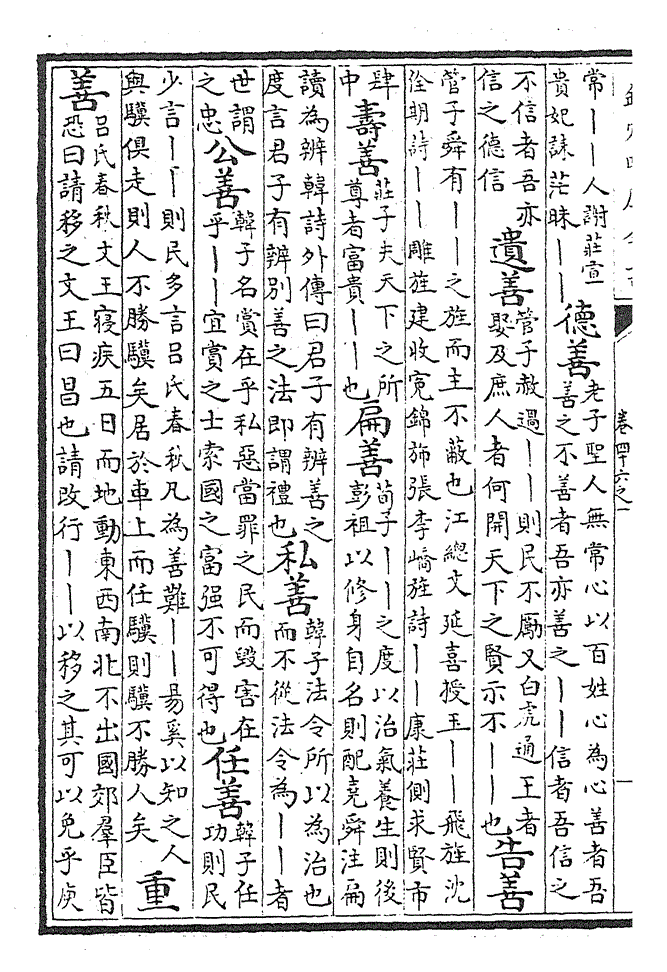 卷四十六之一
常丨丨人謝莊宣貴妃誄茫昧丨丨德善老子聖人無常心以百姓心為心善者吾善之不善者吾亦善之丨丨信者吾信之
不信者吾亦信之德信遺善管子赦過丨丨則民不厲又白虎通王者娶及庶人者何開天下之賢示不丨丨也告善
管子舜有丨丨之旌而主不蔽也江總文延喜授玉丨丨飛旌沈佺期詩丨丨雕旌建收寃錦旆張李嶠旌詩丨丨康莊側求賢市
肆中壽善莊子夫天下之所尊者富貴丨丨也扁善荀子丨丨之度以治氣養生則後彭祖以修身自名則配堯舜注扁
讀為辨韓詩外傳曰君子有辨善之度言君子有辨別善之法即謂禮也私善韓子法令所以為治也而不從法令為丨丨者
世謂之忠公善韓子名賞在乎私惡當罪之民而毀害在乎丨丨宜賞之士索國之富强不可得也任善韓子任功則民
少言丨丨則民多言吕氏春秋凡為善難丨丨昜奚以知之人與驥俱走則人不勝驥矣居於車上而任驥則驥不勝人矣重
善吕氏春秋文王寢疾五日而地動東西南北不出國郊羣臣皆恐曰請移之文王曰昌也請改行丨丨以移之其可以免乎庾